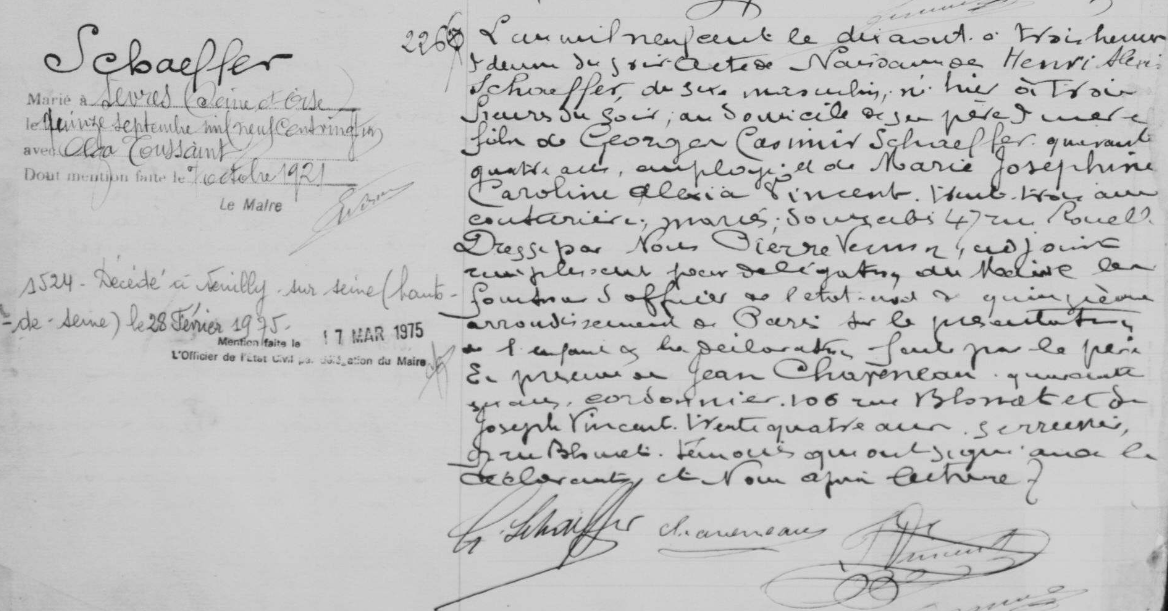 Schaeffer
Marié à Sèvres (Seine et Oise)
le quinze septembre mil neuf cent vingt un
avec Olga Toussaint
Dont mention faite le 7 octobre 1921
Le Maire
1524 - Décédé à Neuilly-sur-Seine (Hauts-
-de-Seine) le 28 Février 1975.
Mention faite le 17 MAR 1975
L'Officier de l'Etat Civil par délégation du Maire
226
L'an mil neuf cent le dix aout à trois heures
& demie du soir Acte de Naissance de Henri Alexis
Schaeffer, de sexe masculin, né hier à trois
heures du soir, au domicile de ses père & mère
fils de Georges Casimir Schaeffer quarante
quatre ans, employé, et de Marie Joséphine
Caroline Alexia Vincent. trente-trois ans
couturière, mariés; domiciliés 47 rue Rouelle
Dressé par Nous Pierre, adjoint
remplissant par délégation du Maire les
fonctions d'officier de l'état-civil du quinzième
arrondissement de Paris sur la présentation
de l'enfant & la déclaration faite par le père
En présence de Jean Charéneau. quarante
ans, cordonnier. 106 rue Blomet et de
Joseph Vincent. trente quatre ans, serrurier,
rue Blomet. témoins qui ont signé avec le
déclarant et Nous après lecture
G. Schaeffer
Chareneau
Vincent